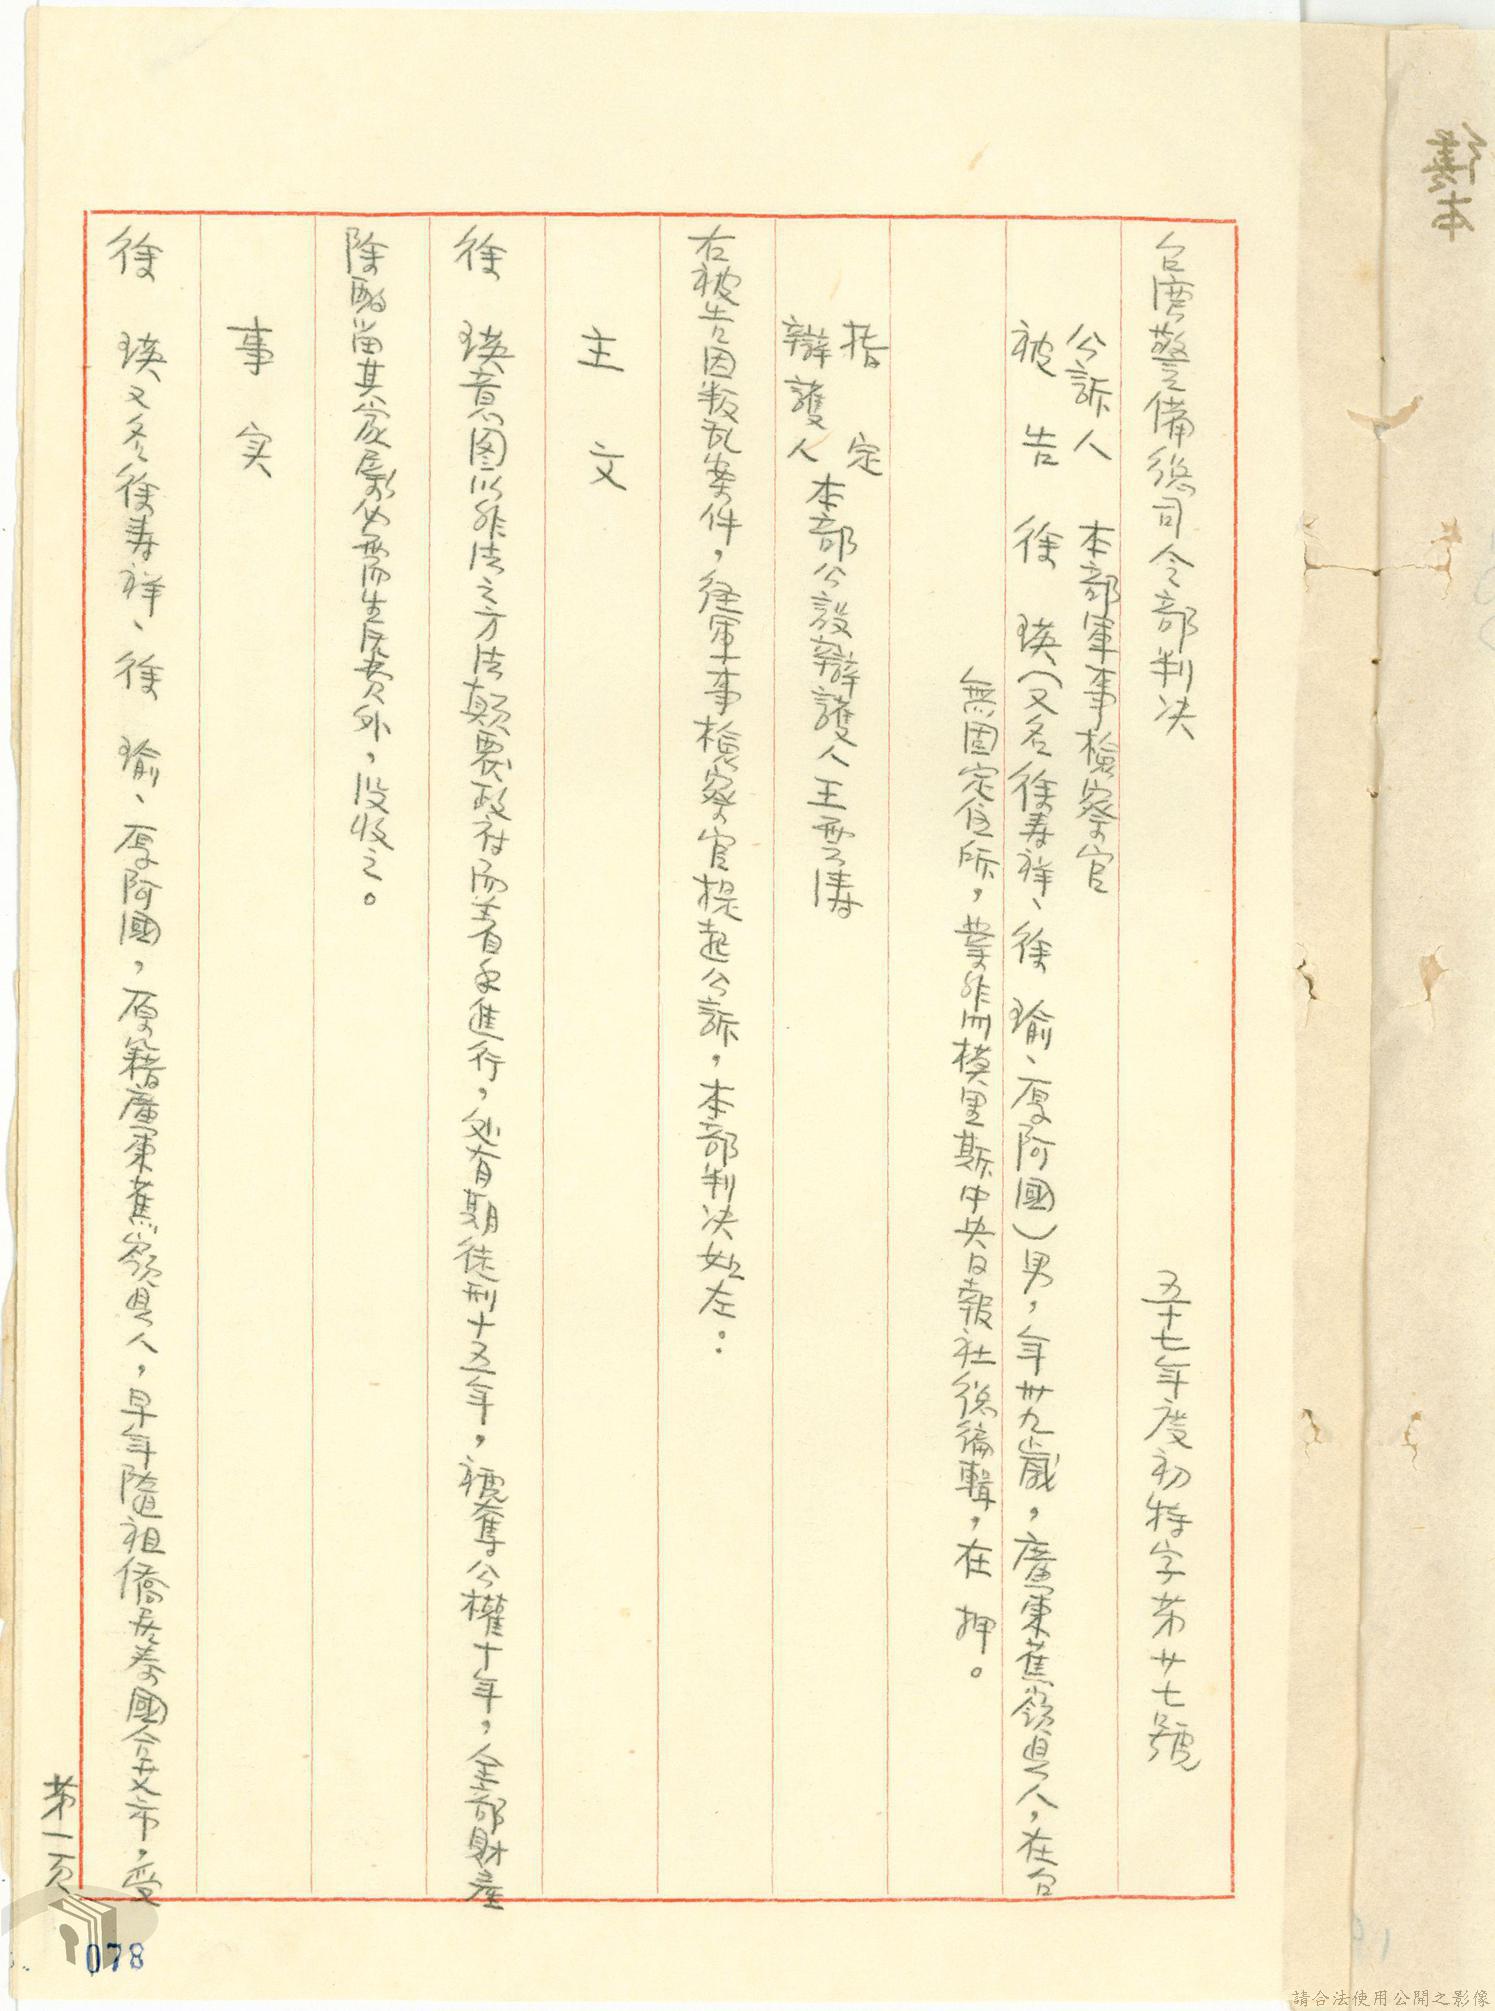 台湾警备总司令部判决　五十七年度初特字苐廿七號
公訴人　本部軍事檢察官
被告　徐瑛（又名徐寿祥、徐瑜、厚阿國）男，年卅九歲，廣東蕉嶺县人，在台
無固定住所，業非洲模里斯中央日報社总編輯，在押。
指定
辯護人　本部公設辯護人王雲涛
右被告因叛乱案件，经軍事檢察官提起公訴，本部判决如左：
主文
徐瑛意图以非法之方法顛覆政府而着手進行，处有期徒刑十五年，褫奪公權十年，全部財產
除酌留其家屬必需生活費外，没收之。
事实
徐瑛又名徐寿祥、徐瑜、厚阿國，原籍廣東蕉嶺县人，早年隨祖僑居泰國合艾市，受
苐一页
078
繕本
請合法使用公開之影像